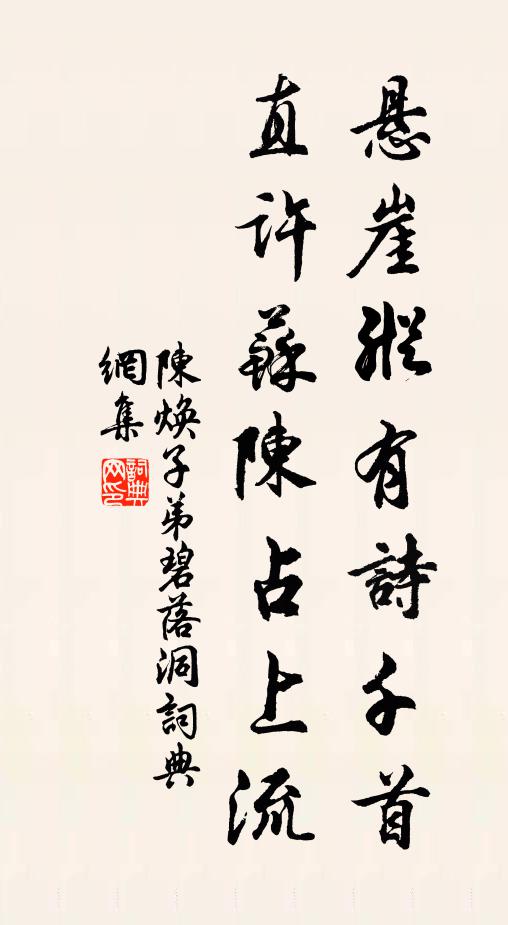 悬崖縱有詩千首
直許蘇陳占上流
陳煥子弟碧落洞詞典
網集
詞典网印